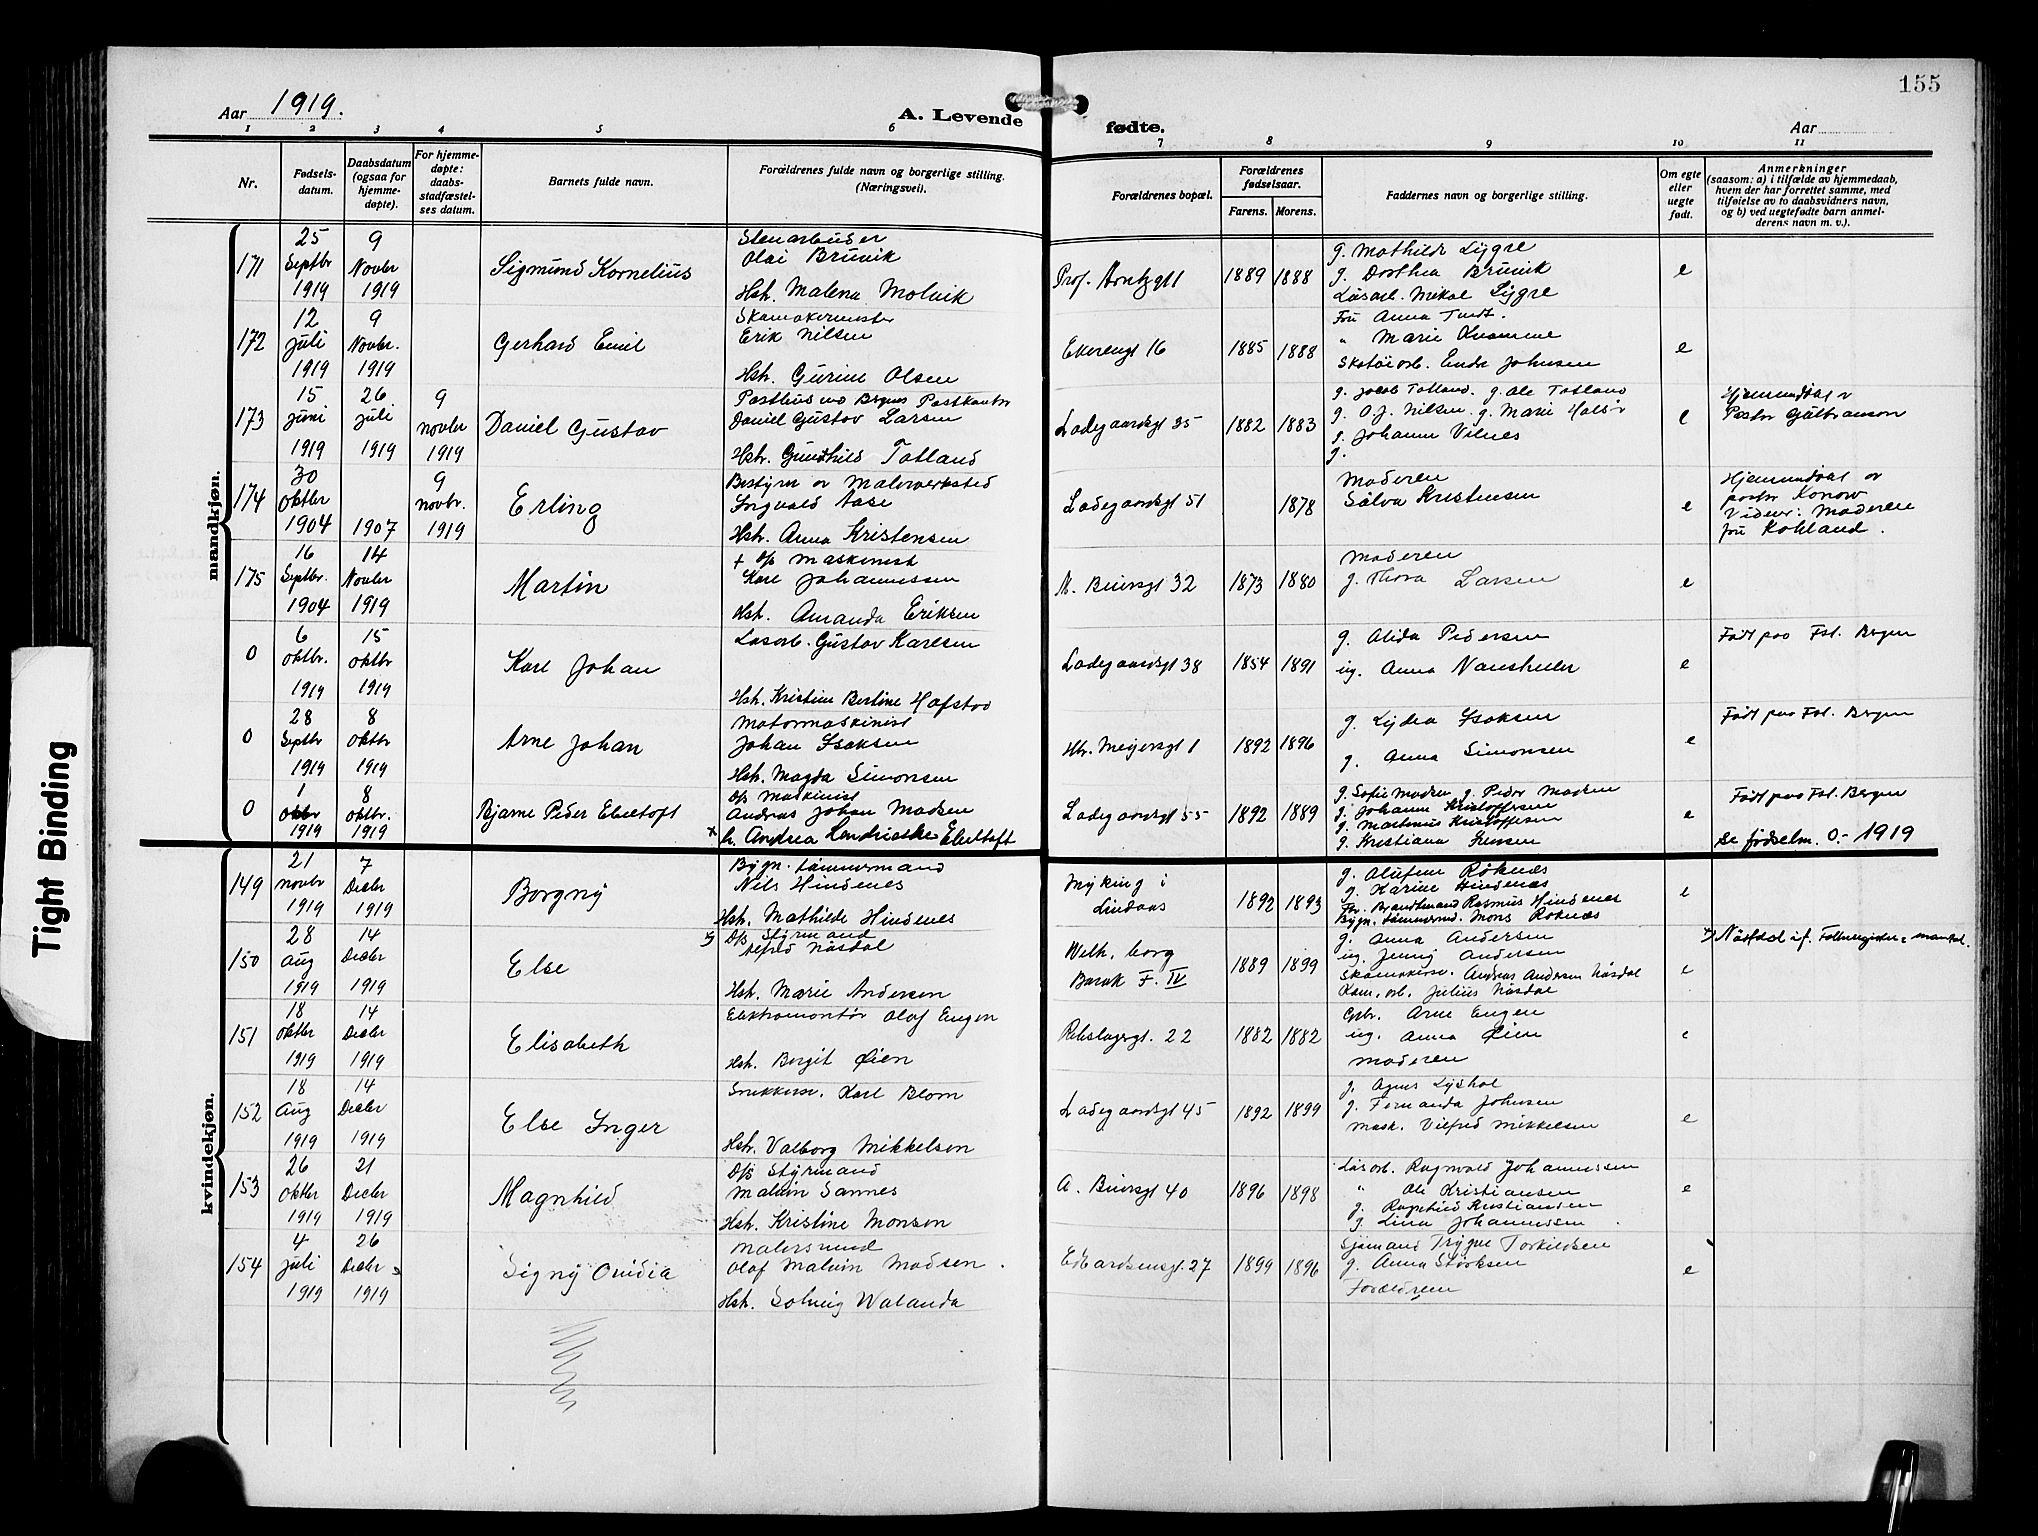 155
Aar 1919.
A. Levende
fødte.
Aar
1 2 3 4 5 6 7 8 9 10 11
Nr.
Fødsels-
datum.
Daabsdatum
(ogsaa for
hjemme-
døpte).
For hjemme-
døpte:
daabs-
stadfæstel-
ses datum.
Barnets fulde navn.
Forældrenes fulde navn og borgerlige stilling.
(Næringsvei).
Forældrenes bopæl.
Forældrenes
fødselsaar.
Farens. Morens.
Faddernes navn og borgerlige stilling.
Om egte
eller
uegte
født.
Anmerkninger
(saasom: a) i tilfælde av hjemmedaab,
hvem der har forrettet samme, med
tilføielse av to daabsvidners navn,
og b) ved uegtefødte barn anmel-
derens navn m. v.).
mandkjøn.
171
25
Septbr
1919
9
Novbr
1919
Sigmund Kornelius
Stenarbuser
Olai Bruvik
Hst. Malena Molvik
Prof. Arntzgt 1
1889 1888
g. Mathilde Lygre
g. Dorthea Bruvik
Løsarb. Mikal Lygre
e
172
12
Juli
1919
9
Novbr.
1919
Gerhard Emil
Skomakermester
Erik Nilsen
Hst. Gurine Olsen
Ekerengt 16
1885 1888
Fru Anna Tundt.
" Marie Kvamme
Skotøiarb. Endr Johnsen
e
173
15
Juni
1919
26
Juli
1919
9
novbr
1919
Daniel Gustav
Postbud ved Bergens Postkontor
Daniel Gustav Larsen
Hst. Gundhild Totland
Ladegaardsgt 35
1882 1883
g. Jacob Totland. g. Ole Totland
g. O. J. Nilsen. g. Marie
g. Johanne Vilnes
g.
e
Hjemmedøbt v
Pastor Gulbranson
174
30
Oktbr
1904
1907
9
novbr.
1919
Erling
Bestyrer av Malerverksted
Ingvald Aase
Hst. Anna Kristensen
Ladegaardsgt 51
1878
Moderen
Sølva Kristensen
e
Hjemmedøbt av
pastor Konow
Vidner: Moderen
fru Kohland.
175
16
Septbr.
1904
14
Novbr
1919
Martin
+ D/s Maskinist
Karl Johannessen
Hst. Amanda Eriksen
M. Beiersgt 32
1873 1880
Moderen
g. Thora Larsen
e
0
6
Oktbr.
1919
15
Oktbr
1919
Karl Johan
Løsarb. Gustav Karlsen
Hst. Kristine Bertine Hafstad
Ladegaardsgt 38
1854 1891
g. Alida Pedersen
ug. Anna
e
Født paa Fst. Bergen
0
28
Septbr
1919
8
Oktbr
1919
Arne Johan
Motormaskinist
Johan Isaksen
Hst. Magda Simonsen
Hr. Meyersgt 1
1892 1896
g. Lydia Isaksen
g. Anna Simonsen
e
Født paa Fst. Bergen
0
1
Oktbr
1919
8
Oktbr.
1919
Bjarne Peder Ebeltoft
D/s Maskinist
Andreas Johan Madsen
x h. Andrea Hendrikke Ebeltoft
Ladegaardsgt 55
1892 1889
g. Sofie Madsen g. Peder Madsen
g. Johanne Kristoffersen
g. Martinus Kristoffersen
g. Kristiana Jensen
e
Født paa Fst. Bergen
se fødselm. 0.-1919
kvindekjøn.
149
21
Novbr
1919
7
Decbr
1919
Borgny
Bygn. tømmermand
Nils Hindenes
Hst. Mathilde Hindenes
Myking i
Lindaas
1892 1893
g. Olufine Røknes
g. Karine Hindenæs
fhv. Brandmand Rasmus Hindenes
Bygn. tømmermd. Mons Roknæs
e
150
28
Aug
1919
14
Decbr
1919
Else
D/s Styrmand
Alfred Nåsdal
Hst. Marie Andersen
Welh. borg
Barak F. IV
1889 1899
g. Anna Andersen
ug. Jenny Andersen
Skomakersv. Andreas Andersen Nåsdal
Kom. arb. Julius Nåsdal
e
Nåsdal if. Folkeregister &
151
18
Oktbr
1919
14
Decbr
1919
Elisabeth
Elektromontør Olaf Engen
Hst. Borgit Øien
Rebslagergt. 22
1882 1882
Gbr. Arne Engen
ug. Anna Øien
Moderen
e
152
18
Aug
1919
14
Decbr
1919
Else Inger
Snekkersv. Karl Blom
Hst. Valborg Mikkelsen
Ladegaardsgt 45
1892 1899
g. Agnes Lyshol
g. Fernanda Johnsen
Mask. Vilfred Mikkelsen
e
153
26
Oktbr
1919
21
Decbr
1919
Magnhild
D/s Styrmand
Malvin Sannes
Hst. Kristine Monsen
A. Beiersgt 40
1896 1898
Løsarb. Ragnvald Johannessen
" Ole Kristiansen
g. Ragnhild Kristiansen
g. Lina Johannessen
e
154
4
Juli
1919
26
Decbr
1919
Signy Ovidia
Malersvend
Olaf Malvin Madsen.
Hst. Solveig Walanda
Edvardsensgt. 27
1899 1896
Sjømand Trygve Torkildsen
g. Anna Størksen
Forældrene
e
Tight Binding